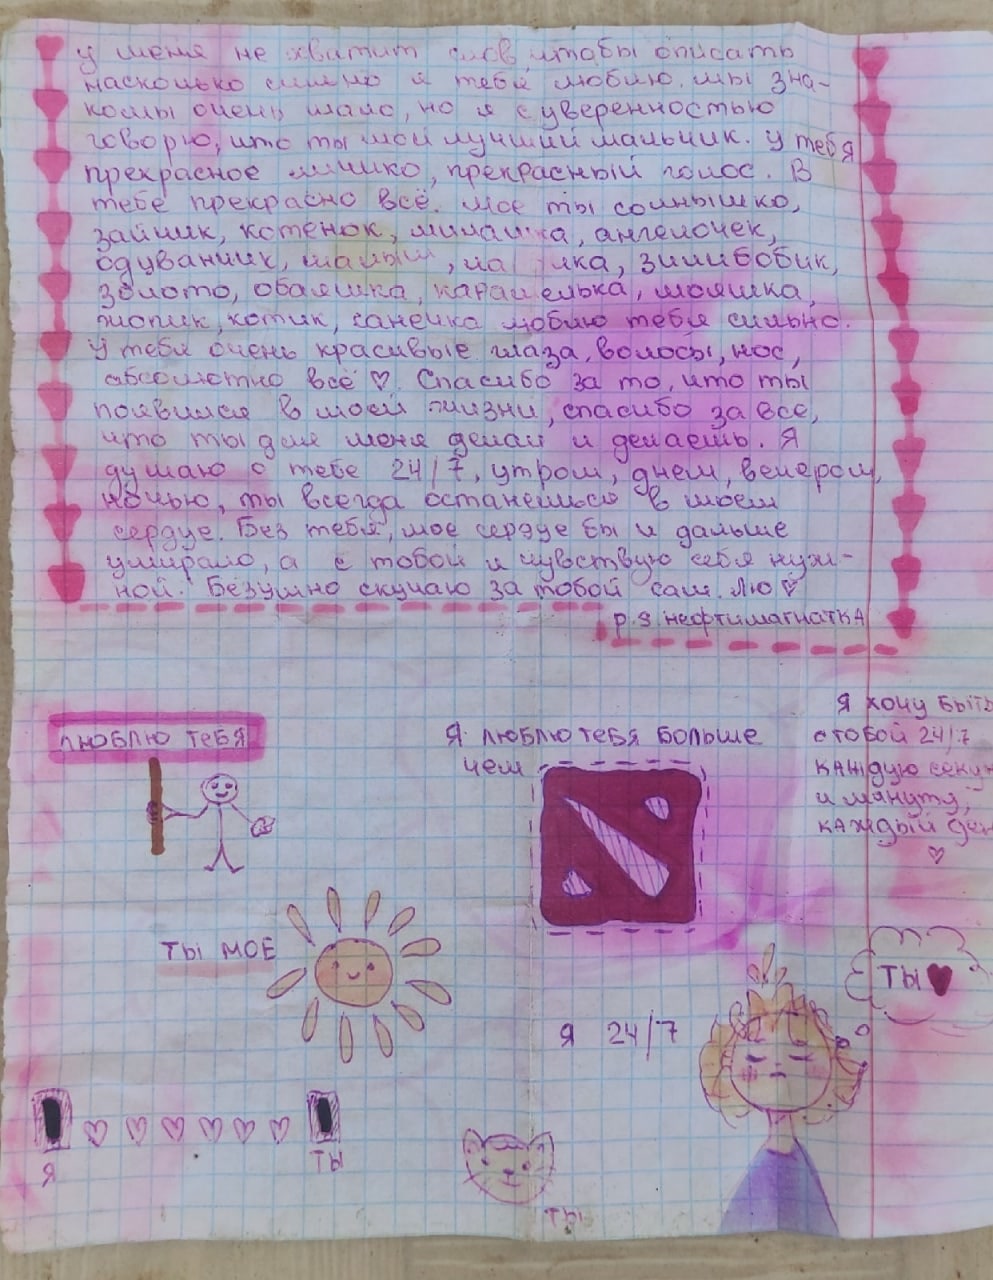 у меня не хватит слов чтобы описать
насколько сильно я тебя люблю. мы зна-
комы очень мало, но я с уверенностью
говорю, что ты мой лучший мальчик. у тебя
прекрасное личико, прекрасный голос. В
тебе прекрасно всё. Мое ты солнышко,
зайчик, котенок, милашка, ангелочек,
одуванчик, малыш, зилибобик,
золото, обаяшка, карамелька, моляшка,
котик, санечка люблю тебя сильно.
У тебя очень красивые глаза, волосы, нос,
абсолютно всё ♡. Спасибо за то, что ты
появился в моей жизни, спасибо за все,
что ты для меня делал и делаешь. Я
думаю о тебе 24/7, утром, днем, вечером,
ночью, ты всегда останешься в моем
сердце. Без тебя, мое сердце бы и дальше
умирало, а с тобой я чувствую себя нуж-
ной. Безумно скучаю за тобой саш. Лю ♡
p.s нефтимагнатка
люблю тебя
Я люблю тебя больше
чем
Я хочу быть
с тобой 24/7
каждую секун
и минуту,
каждый ден
♡
ты мое
ты ♥
я 24/7
я
ты
ты